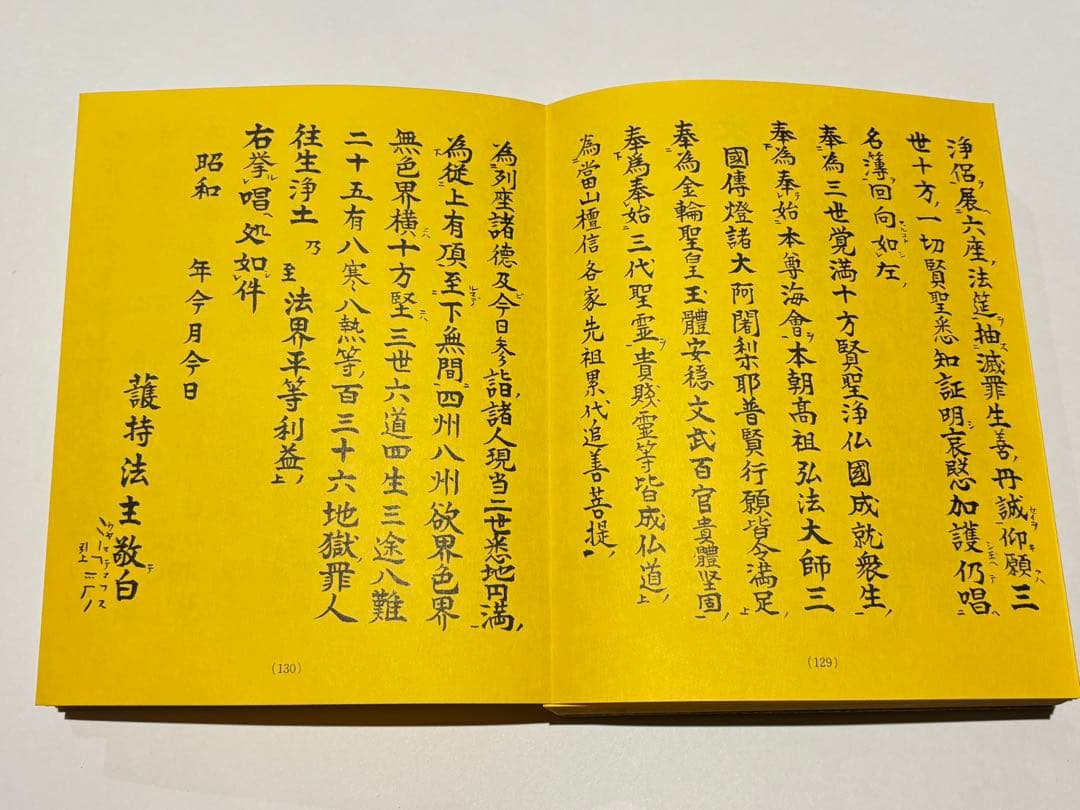 浄侶展六座法筵抽滅罪生善丹誠仰願三
世十方一切賢聖悉知証明哀愍加護仍唱
名簿回向如左
奉為三世覚満十方賢聖浄仏國成就衆生
奉為奉始本尊海會本朝高祖弘法大師三
國傳燈諸大阿闍梨耶普賢行願皆令満足
奉為金輪聖皇玉體安穏文武百官貴體堅固
奉為奉始三代聖霊貴賎霊等皆成仏道
為當山檀信各家先祖累代追善菩提
(129)
為列座諸德及今日参詣諸人現当二世悉地円満
為従上有頂至下無間四州八州欲界色界
無色界横十方竪三世六道四生三途八難
二十五有八寒八熱等百三十六地獄罪人
往生浄土乃至法界平等利益
右挙唱処如件
昭和 年今月今日
護持法主敬白
(130)